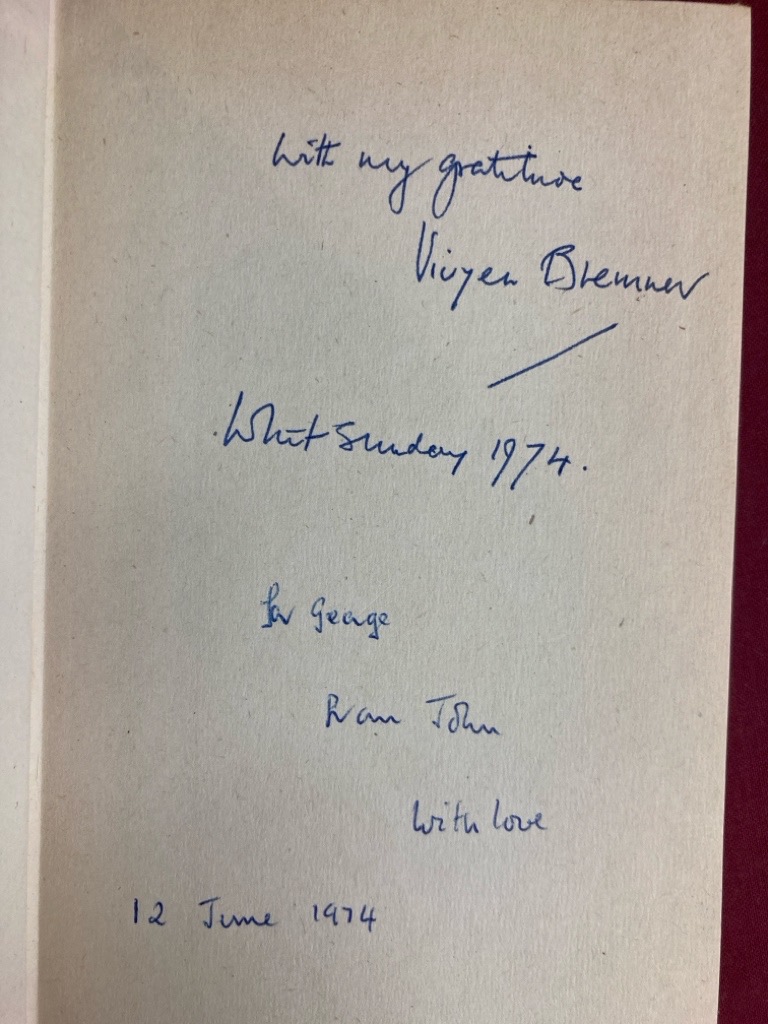 With my gratitude
Vivyen Bremner
Whit Sunday 1974.
for George
from John
with love
12 June 1974